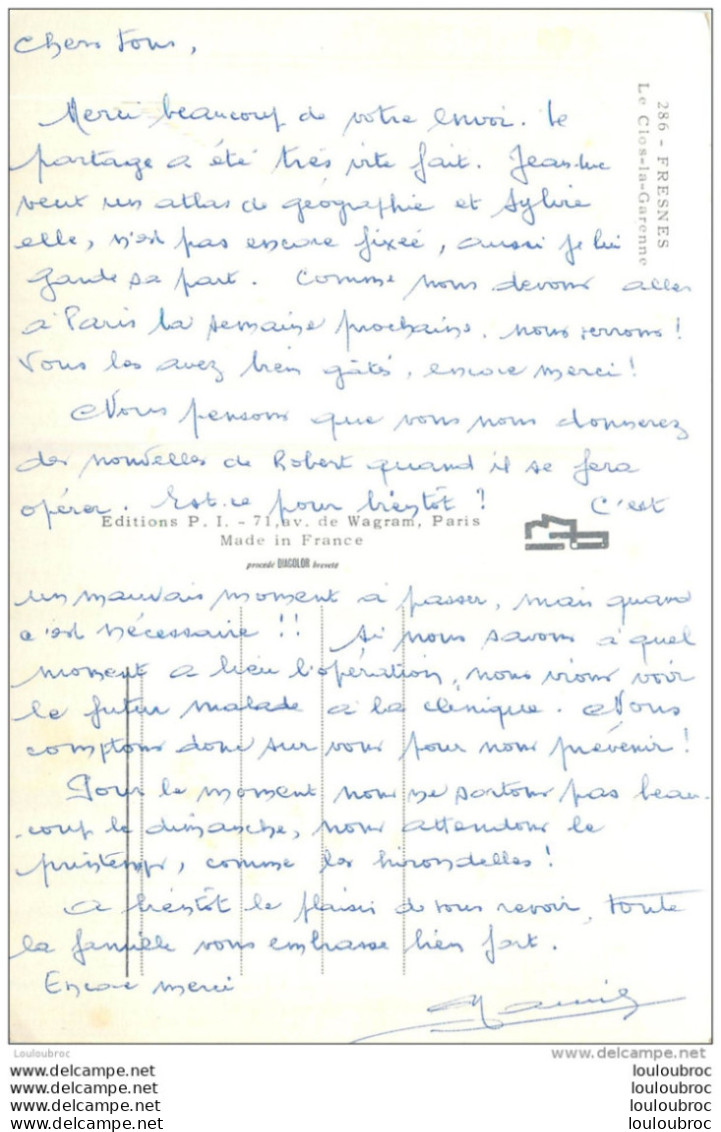 Chers Tous,
Merci beaucoup de votre envoi. Le
partage a été très vite fait. Jean-luc
veut un atlas de géographie et Sylvie
elle, n'est pas encore fixeé, aussi je lui
garde sa part. Comme nous devons aller
à Paris la semaine prochaine, nous verrons!
Vous les avez bien gâtés, encore merci!
Nous pensons que vous nous donnerez
des nouvelles de Robert quand il se fera
opérer. Est-ce pour bientôt? C'est
un mauvais moment à passer, mais quand
c'est nécessaire!! Si nous savons à quel
moment a lieu l'opération, nous irons voir
le futur malade à la clinique. Nous
comptons donc sur vous pour nous prévenir!
Pour le moment nous ne sortons pas beau-
coup le dimanche, nous attendons le
printemps, comme les hirondelles!
A bientôt le plaisir de vous revoir, toute
la famille vous embrasse bien fort.
Encore merci
286 - FRESNES
Le Clos-la-Garenne
Editions P. I. - 71, av. de Wagram, Paris
Made in France
procédé DIACOLOR breveté
Louloubroc
www.delcampe.net
www.delcampe.net
www.delcampe.net
www.delcampe.net
www.delcampe.net
louloubroc
louloubroc
louloubroc
louloubroc